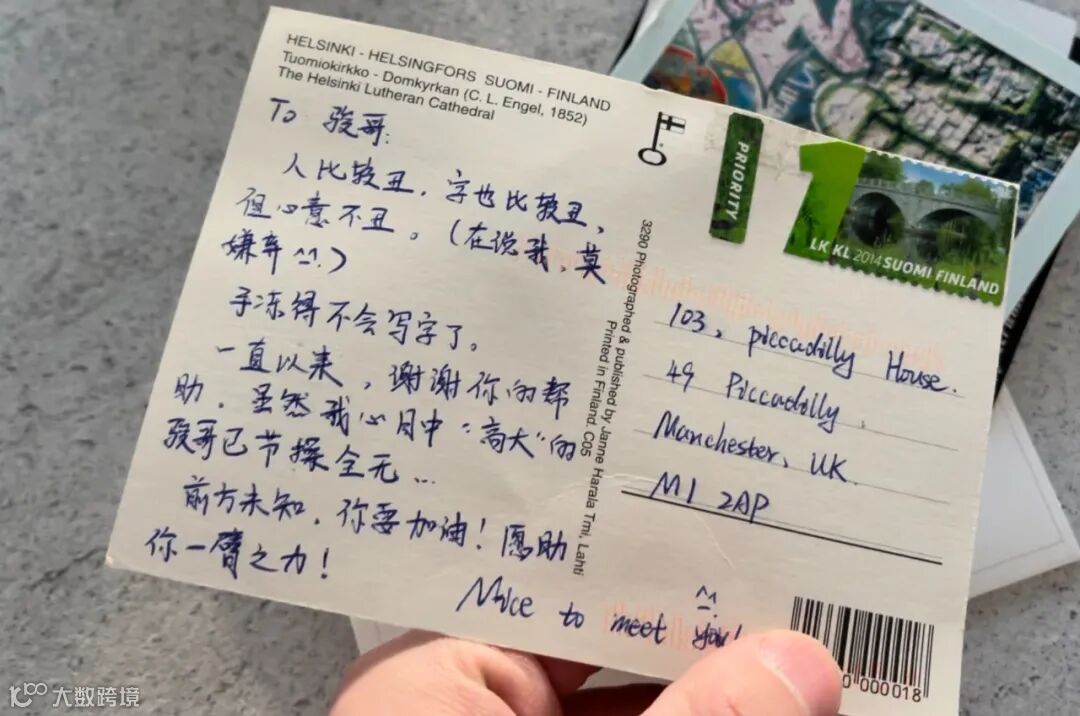 HELSINKI - HELSINGFORS SUOMI - FINLAND
Tuomiokirkko - Domkyrkan (C. L. Engel, 1852)
The Helsinki Lutheran Cathedral
To 骏哥:
人比较丑，字也比较丑，
但心意不丑。(在说我，莫
嫌弃^_^)
手冻得不会写字了。
一直以来，谢谢你的帮
助，虽然我心目中“高大”的
骏哥已节操全无...
前方未知，你要加油！愿助
你一臂之力！
Nice to meet you!
^_^
3290 Photographed & published by Janne Harala Tmi, Lahti
Printed in Finland. C05
PRIORITY
1
LK KL 2014 SUOMI FINLAND
103, piccadilly House.
49 Piccadilly,
Manchester, UK.
M1 2AP
0 000018
大数跨境